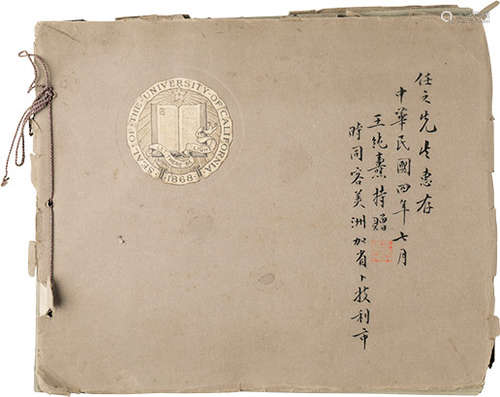 任之先生惠存
中華民國四年七月
王純燾持贈
時同客美洲加省卜技利市
SEAL OF THE UNIVERSITY OF CALIFORNIA
1868